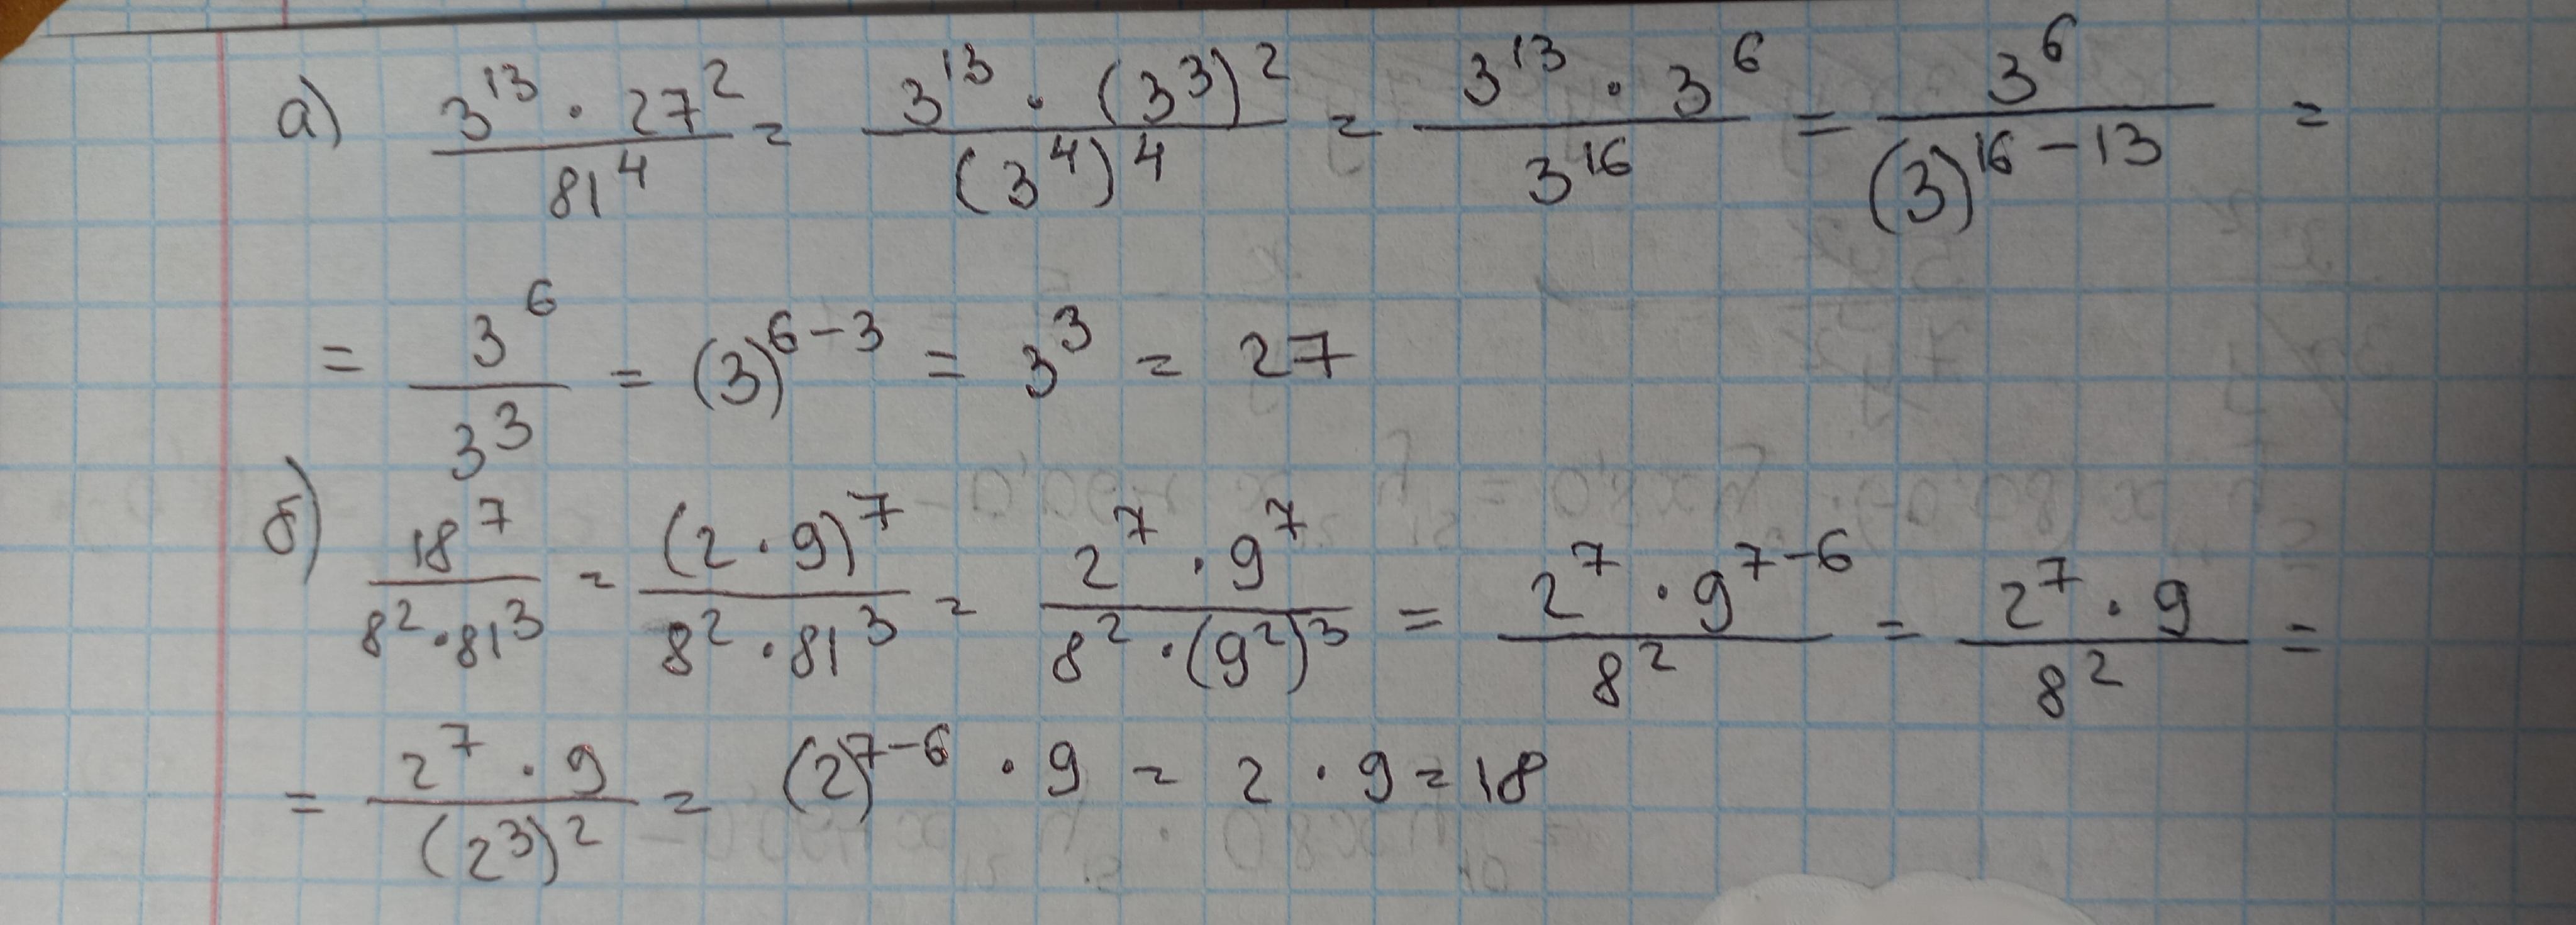 а) (3^13 · 27^2)/(81^4) = (3^13 · (3^3)^2)/((3^4)^4) = (3^13 · 3^6)/(3^16) = (3^6)/((3)^(16-13)) =
= (3^6)/(3^3) = (3)^(6-3) = 3^3 = 27
б) (18^7)/(8^2 · 81^3) = ((2 · 9)^7)/(8^2 · 81^3) = (2^7 · 9^7)/(8^2 · (9^2)^3) = (2^7 · 9^(7-6))/(8^2) = (2^7 · 9)/(8^2) =
= (2^7 · 9)/((2^3)^2) = (2)^(7-6) · 9 = 2 · 9 = 18